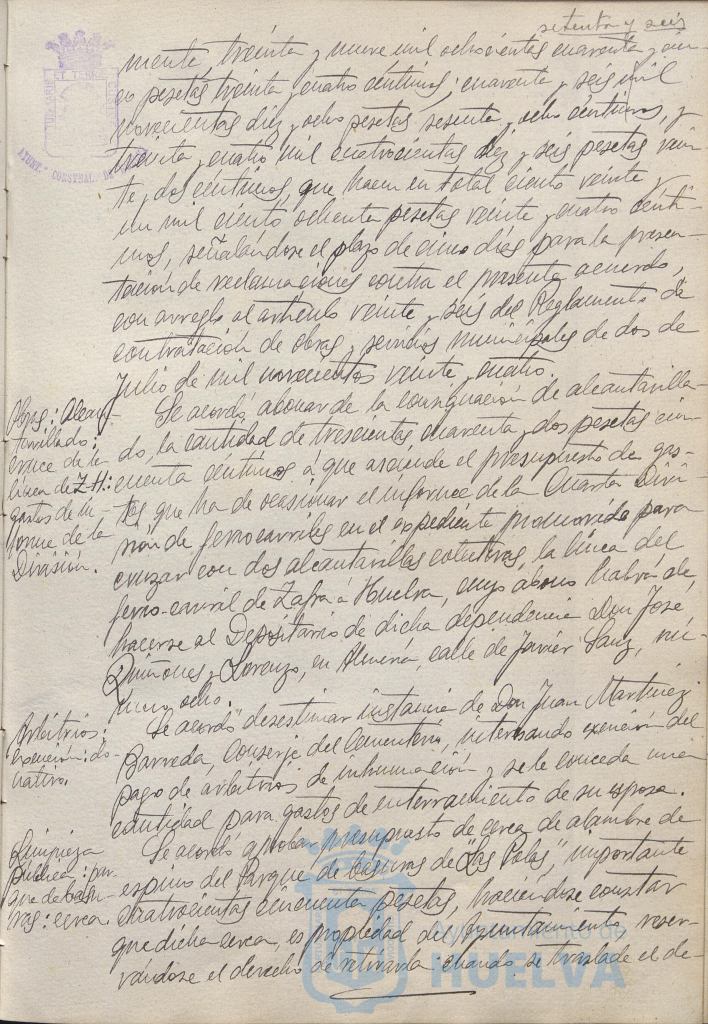 setenta y seis
mente treinta y nueve mil ochocientas cuarenta y cin-
co pesetas treinta y cuatro céntimos; cuarenta y seis mil
novecientas diez y ocho pesetas sesenta y ocho céntimos, y
treinta y cuatro mil cuatrocientas diez y seis pesetas vein-
te y dos céntimos, que hacen en total ciento veinte y
un mil ciento ochenta pesetas veinte y cuatro cénti-
mos, señalándose el plazo de cinco días para la presen-
tación de reclamaciones contra el presente acuerdo,
con arreglo al artículo veinte y seis del Reglamento de
contratación de obras y servicios municipales de dos de
Julio de mil novecientos veinte y cuatro.
Obras: Alcan-
tarillado:
cruce de la
línea de Z.H:
gastos de in-
forme de la
División.
Se acordó abonar de la consignación de alcantarilla-
do, la cantidad de trescientas cuarenta y dos pesetas cin-
cuenta céntimos á que asciende el presupuesto de gas-
tos que ha de ocasionar el informe de la Cuarta Divi-
sión de ferrocarriles en el expediente promovido para
cruzar con dos alcantarillas colectoras, la línea del
ferro-carril de Zafra á Huelva, cuyo abono habrá de
hacerse al Depositario de dicha dependencia Don José
Quiñones y Lorenzo, en Almería, calle de Javier Sanz, nú-
mero ocho.
Arbitrios:
exención: do-
nativo.
Se acordó desestimar instancia de Don Juan Martínez
Barreda, conserje del Cementerio, interesando exención del
pago de arbitrios de inhumación y se le conceda una
cantidad para gastos de enterramiento de su esposa.
Limpieza
pública: par-
que de basu-
ras: cerca.
Se acordó aprobar presupuesto de cerca de alambre de
espino del Parque de basuras de "Las Polas", importante
cuatrocientas cincuenta pesetas, haciéndose constar
que dicha cerca es propiedad del Ayuntamiento, reser-
vándose el derecho de retirarla cuando se traslade el de-
Ayuntamiento de
HUELVA